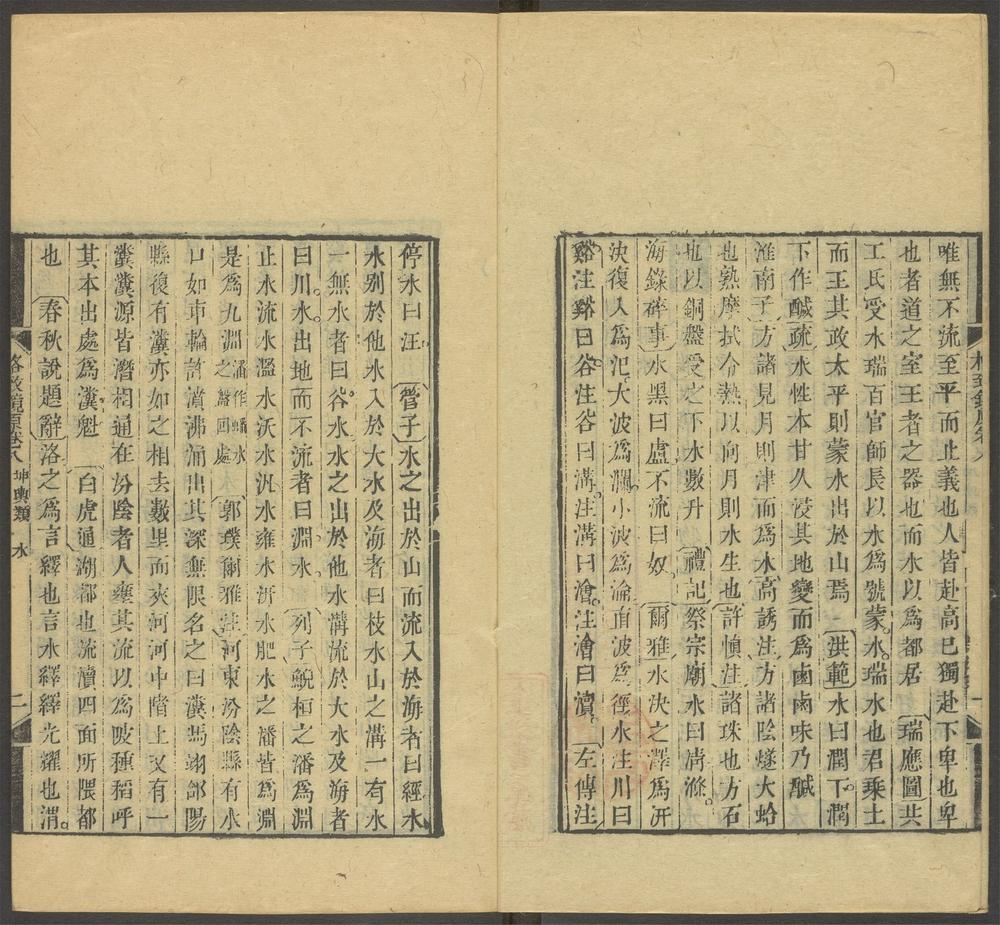 唯無不流至平而止義也人皆赴高已獨赴下卑也卑
也者道之室王者之器也而水以爲都居　瑞應圖共
工氏受水瑞百官師長以水爲號蒙水瑞水也君乘土
而王其政太平則蒙水出於山焉　洪範水曰潤下潤
下作鹹疏水性本甘久浸其地變而爲鹵鹵味乃鹹
淮南子方諸見月則津而爲水高誘注方諸陰燧大蛤
也熟摩拭令熱以向月則水生也許慎注諸珠也方石
也以銅盤受之下水數升　禮記祭宗廟水曰淸滌
海錄碎事水黑曰盧不流曰奴　爾雅水決之澤爲汧
決復入爲汜大波爲瀾小波爲淪直波爲徑水注川曰
谿注谿曰谷注谷曰溝注溝曰澮注澮曰瀆　左傳注
停水曰汪　管子水之出於山而流入於海者曰經水
水别於他水入於大水及海者曰枝水山之溝一有水
一無水者曰谷水水之出於他水溝流於大水及海者
曰川水出地而不流者曰淵水　列子鯢桓之潘爲淵
止水流水濫水沃水氿水雍水汧水肥水之潘皆爲淵
是爲九淵潘作蟠水之盤囘處　郭璞爾雅注河東汾陰縣有水
口如車輪許濆沸涌出其深無限名之曰瀵馮翊郃陽
縣復有瀵亦如之相去數里而夾河河中陼上又有一
瀵瀵源皆潛相通在汾陰者人壅其流以爲陂種稻呼
其本出處爲瀵魁　白虎通湖都也流瀆四面所隈都
也　春秋說題辭洛之爲言繹也言水繹繹光耀也渭
格致鏡原卷八　坤輿類　水　二